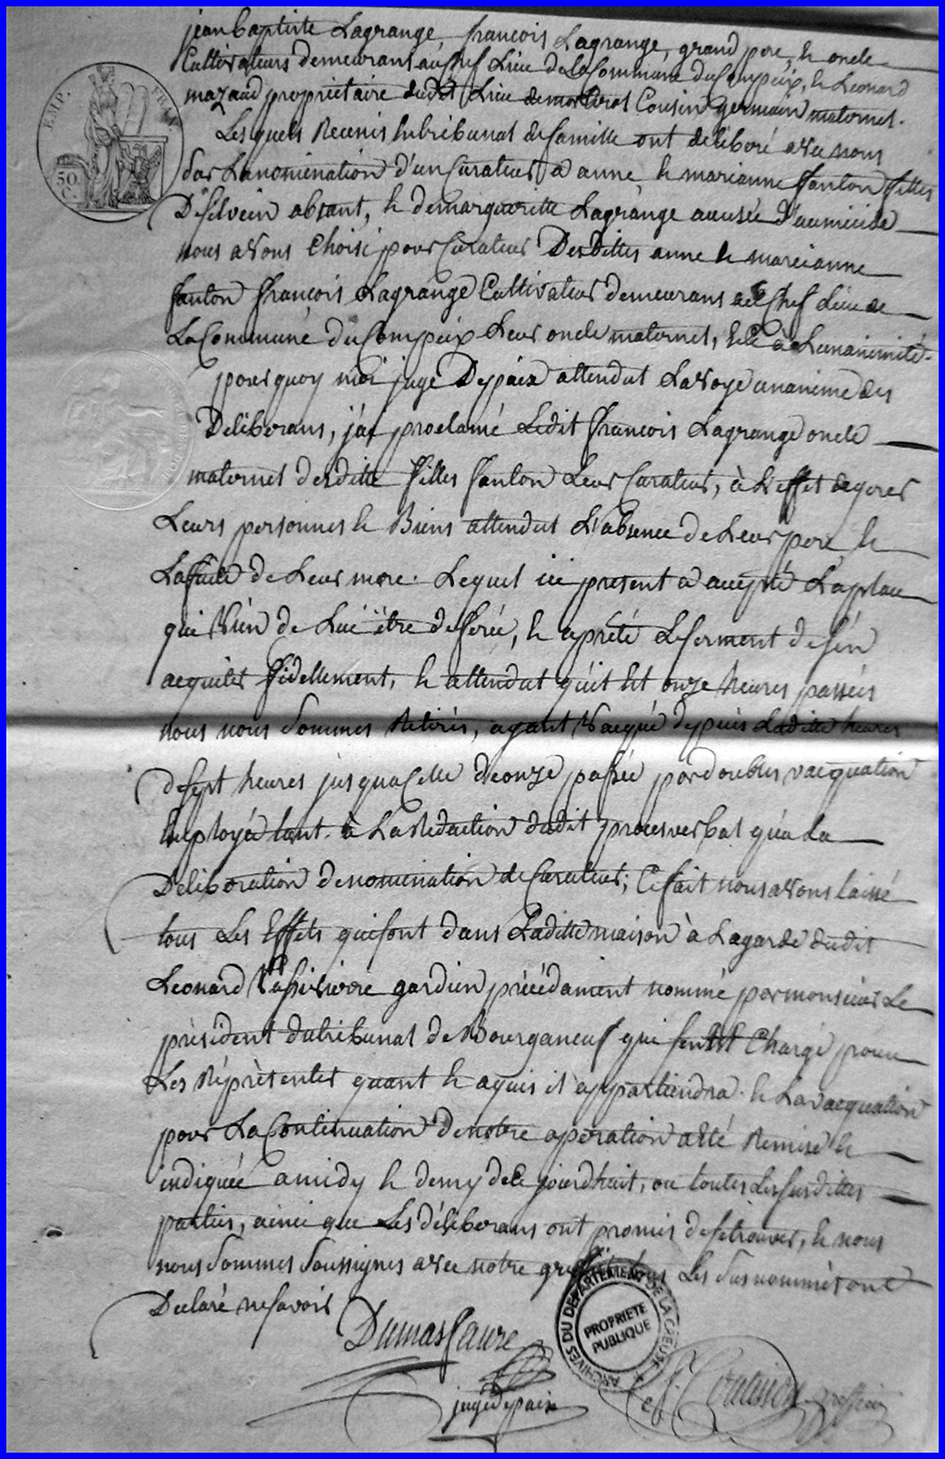 jean Baptiste Lagrange, francois Lagrange, grand pere, & oncle
Cultivateurs demeurant au Chef Lieu de La Commune du Compeix, & Leonard
mazaud propriétaire dudit Lieu Cousin germain maternel.
EMP. FRAN.
50 C.
Lesquels Reunis du tribunal de famille ont deliberé avec nous
sur La nomination d'un Curateur a anne & marianne fanton filles
De Silvein absant, & de margueritte Lagrange acusée d'aumicide
nous avons Choisi pour Curateur Desdittes anne & marianne
fanton francois Lagrange Cultivateur demeurans au Chef Lieu de
La Commune du Compeix Leur oncle maternel, & Ce a Lunanimité.
pour quoy moi juge De paix attendut La voye unanime des
Deliberans, j'ai proclamé Ledit francois Lagrange oncle
maternel desditte filles fanton Leur Curateur, à L'effet de gerer
Leurs personnes & Biens attendut L'absence de Leur pere &
La fuite de Leur mere. Lequel ici present a accepté La place
qui vien de Lui être deferée, & a preté Le serment de s'en
acquiter fidellement, & attendut qu'il Est onze heures passées
nous nous sommes Retirés, ayant vacqué depuis Laditte heures
de sept heures jusqua Celle de onze passée par doubles vacquation
Employée tant à La Redaction dudit proces verbal qu'a La
Deliberation de nomination de Curateur; Ce fait nous avons laissé
tous Les Effets qui sont dans Laditte maison à La garde dudit
Leonard gardien précédament nommé par monsieur Le
président du tribunal de Bourganeuf qui s'en est Chargé pour
Les Réprèsenter quant & a qui il appartiendra. & La vacquation
pour La Continuation de notre operation a Eté Remise &
indiquée a midy & demy de Ce jourdhuit, ou toutes Les susdittes
parties, ainci que Les délibérans ont promis de se trouver, & nous
nous sommes soussignés avec notre Les susnommés ont
Declaré ne savoir
Dumas faure
juge de paix
ARCHIVES DU DEPARTEMENT DE LA CREUSE
PROPRIETE
PUBLIQUE
greffier